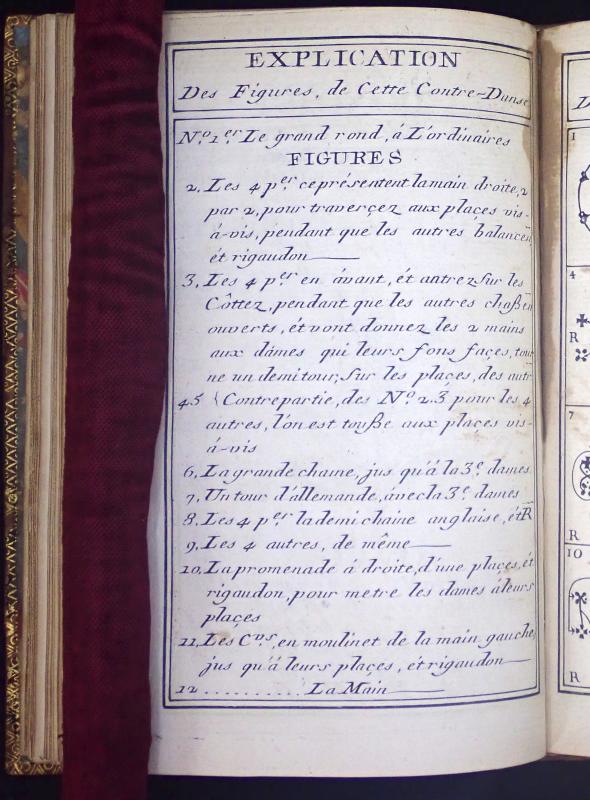 EXPLICATION
Des Figures, de Cette Contre-Danse
N.º 1.er Le grand rond, á L'ordinaires
FIGURES
2, Les 4 p.er ce présentent la main droite, 2
par 2, pour traverçez aux places vis-
á-vis, pendant que les autres balancent
ét rigaudon
3, Les 4 p.er en ávant, ét autrez sur les
Côttez, pendant que les autres chaßent
ouverts, ét vont donnez les 2 mains
aux dámes qui leurs fons façes, tout
ne un demi tour, sur les plaçes, des autr
4.5 Contrepartie, des N.º 2.3 pour les 4
autres, l'on est touße aux plaçes vis-
á-vis
6, La grande chaine, jus qu'á la 3.e dames
7, Un tour d'allemande, ávec la 3.e dames
8, Les 4 p.er la demi chaine anglaise, ét R
9, Les 4 autres, de même
10, La promenade á droite, d'une plaçes, ét
rigaudon, pour metre les dames á leurs
plaçes
11, Les C.vs, en moulinet de la main gauche,
jus qu'á leurs plaçes, et rigaudon
12 .......... La Main
D
1
4
R
7
R
10
R